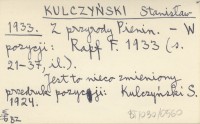 KULCZYŃSKI Stanisław
1933. Z przyrody Pienin. – W
pozycji: Rapf F. 1933 (s.
21-37, il.).
Jest to nieco zmieniony
przedruk pozycji: Kulczyński S.
1924.
BZ